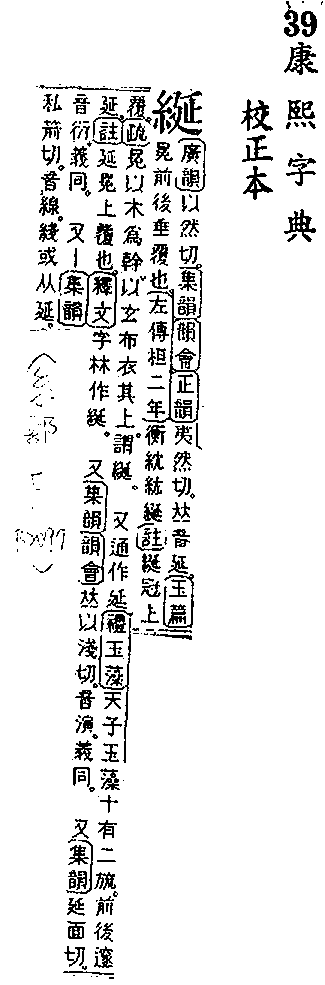 39
康熙字典
校正本
綖
廣韻以然切。集韻韻會正韻夷然切。𠀤音延。玉篇
冕前後垂覆也。左傳桓二年衡紞紘綖註綖冠上
覆。疏冕以木爲幹以玄布衣其上。謂綖。 又通作延禮玉藻天子玉藻十有二旒。前後邃
延。註延冕上覆也。釋文字林作綖。 又集韻韻會𠀤以淺切。音演。義同。 又集韻延面切。
音衍。義同。 又丨集韻
私箭切。音線。綫或从延。